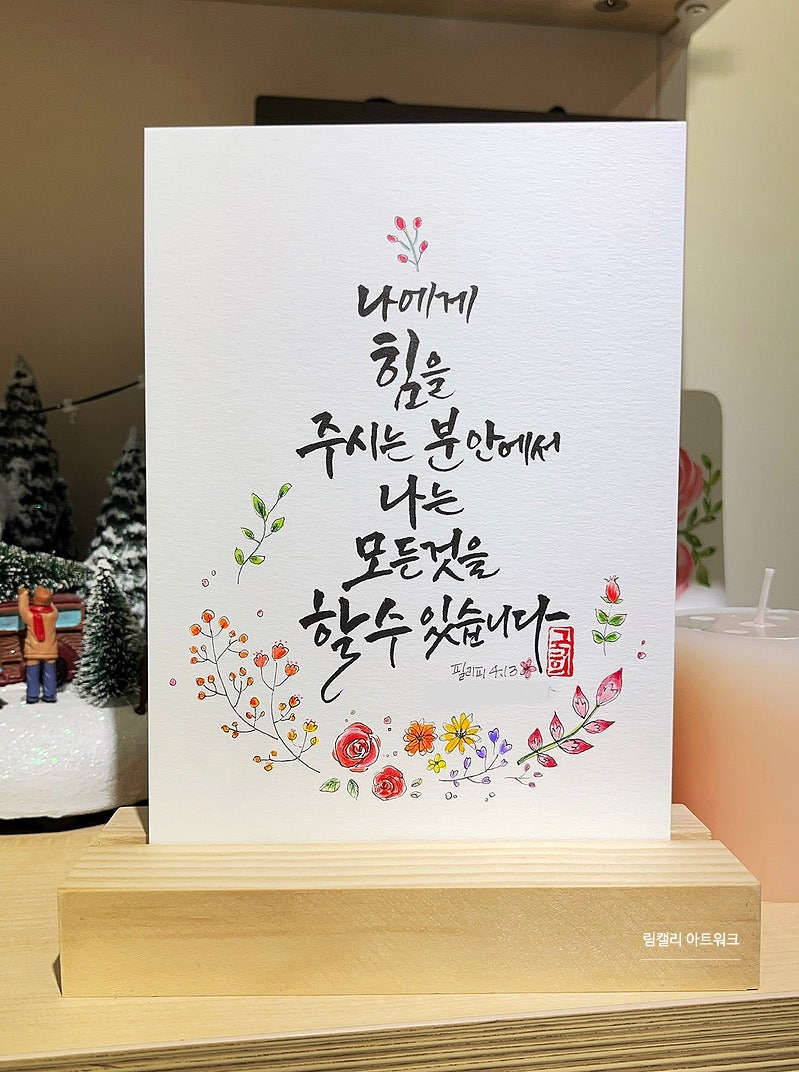 나에게
힘을
주시는 분안에서
나는
모든것을
할 수 있습니다
필리피 4:13
림캘리 아트워크